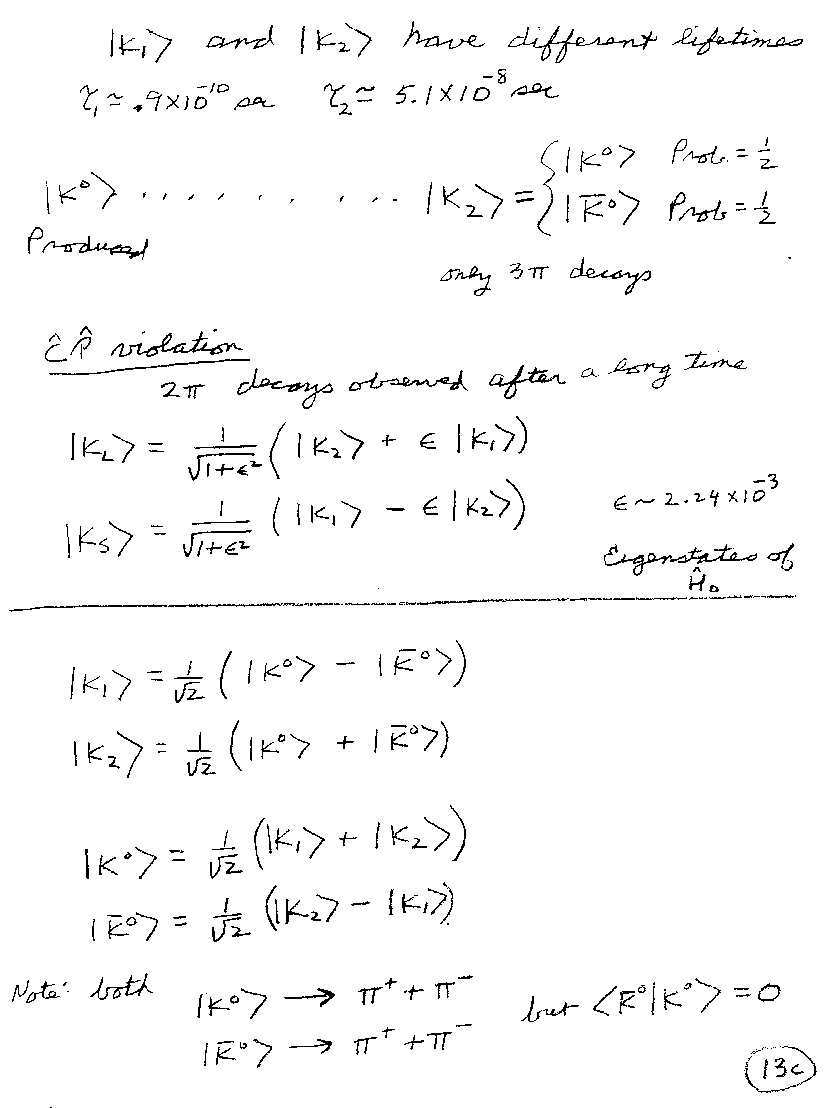 |K₁> and |K₂> have different lifetimes
τ₁ ≃ .9×10⁻¹⁰ sec τ₂ ≃ 5.1×10⁻⁸ sec
|K⁰> . . . . . . . . . |K₂> = { |K⁰> Prob. = 1/2
|K̄⁰> Prob = 1/2
Produced
only 3π decays
ĈP̂ violation
2π decays observed after a long time
|K_L> = 1/√(1+ε²) ( |K₂> + ε |K₁>)
|K_S> = 1/√(1+ε²) ( |K₁> − ε |K₂>) ε ~ 2.24×10⁻³
Eigenstates of
Ĥ₀
|K₁> = 1/√2 ( |K⁰> − |K̄⁰>)
|K₂> = 1/√2 (|K⁰> + |K̄⁰>)
|K⁰> = 1/√2 (|K₁> + |K₂>)
|K̄⁰> = 1/√2 (|K₂> − |K₁>)
Note: both |K⁰> → π⁺ + π⁻ but <K̄⁰|K⁰> = 0
|K̄⁰> → π⁺ + π⁻
13c